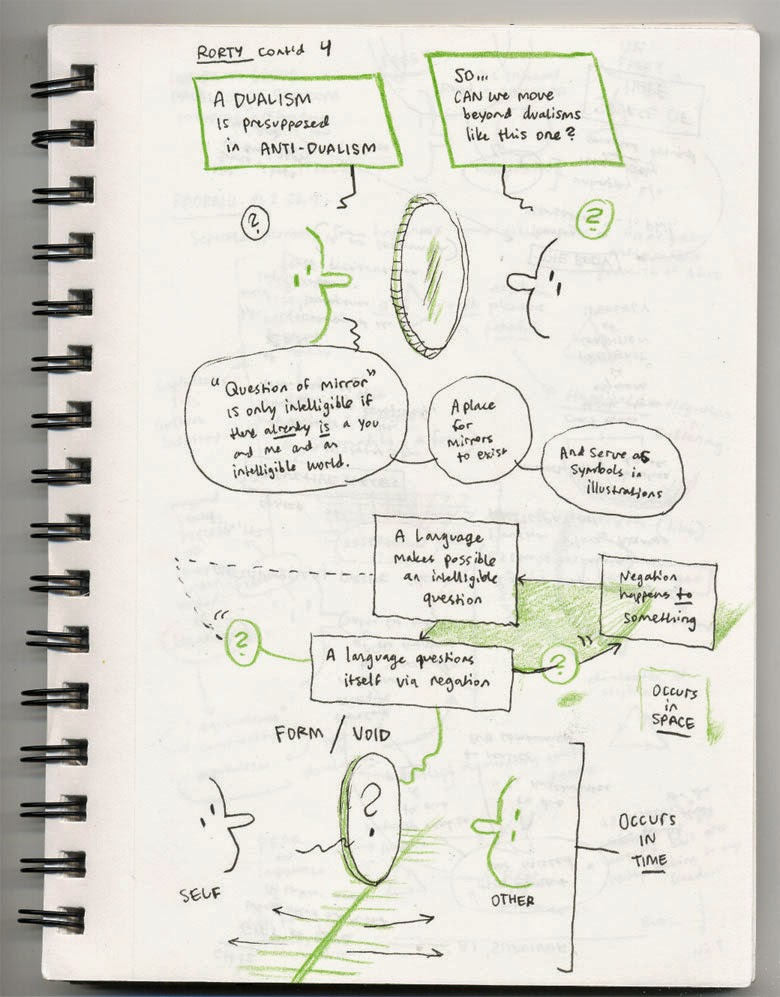 RORTY cont'd 4
A DUALISM
is presupposed
in ANTI-DUALISM
SO...
CAN we move
beyond dualisms
like this one?
?
?
"Question of mirror"
is only intelligible if
there already is a you
and me and an
intelligible world.
A place
for
mirrors
to exist
And serve as
symbols in
illustrations
A language
makes possible
an intelligible
question
Negation
happens to
something
" ? "
?
A language questions
itself via negation
OCCURS
in
SPACE
FORM / VOID
?
SELF
OTHER
OCCURS
IN
TIME